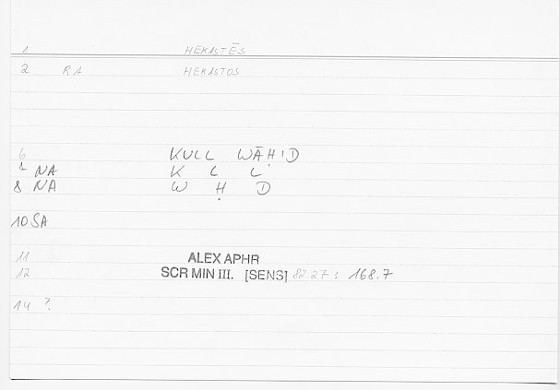 1 HEKASTĒS
2 RA HEKASTOS
6 KULL WĀḤID
7 NA K L L
8 NA W Ḥ D
10 SA
11 ALEX APHR
12 SCR MIN III. [SENS] 82 27 : 168.7
14 ?